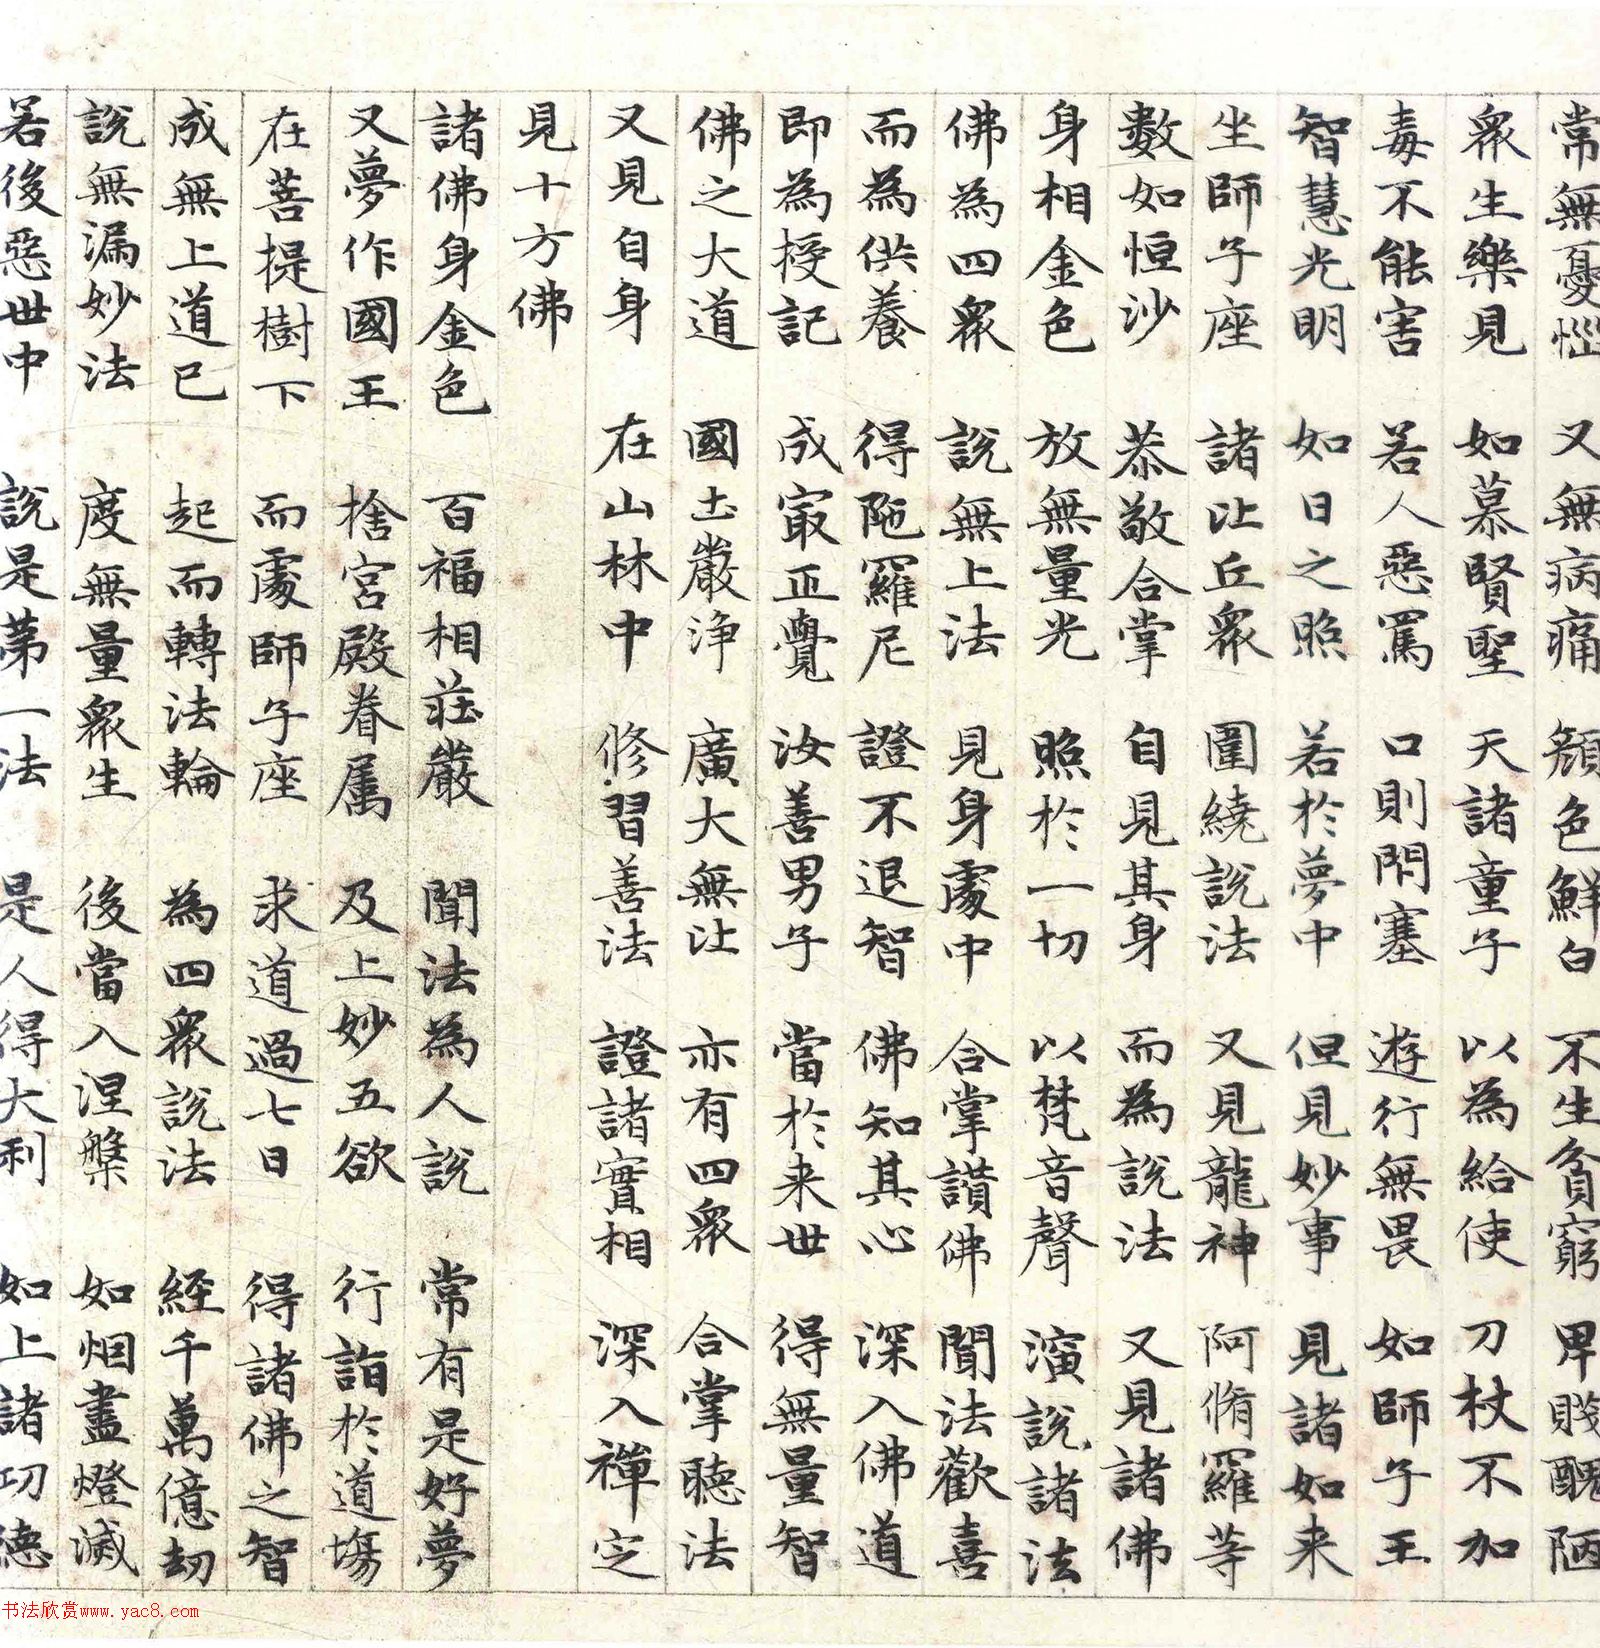 常無憂惱 又無病痛 顏色鮮白 不生貧窮 卑賤醜陋
眾生樂見 如慕賢聖 天諸童子 以為給使 刀杖不加
毒不能害 若人惡罵 口則閇塞 遊行無畏 如師子王
智慧光明 如日之照 若於夢中 但見妙事 見諸如来
坐師子座 諸比丘眾 圍繞說法 又見龍神 阿脩羅等
數如恒沙 恭敬合掌 自見其身 而為說法 又見諸佛
身相金色 放無量光 照於一切 以梵音聲 演說諸法
佛為四眾 說無上法 見身處中 合掌讚佛 聞法歡喜
而為供養 得陁羅尼 證不退智 佛知其心 深入佛道
即為授記 成冣正覺 汝善男子 當於来世 得無量智
佛之大道 國土嚴淨 廣大無比 亦有四眾 合掌聽法
又見自身 在山林中 修習善法 證諸實相 深入禪定
見十方佛
諸佛身金色 百福相莊嚴 聞法為人說 常有是好夢
又夢作國王 捨宮殿眷属 及上妙五欲 行詣於道場
在菩提樹下 而處師子座 求道過七日 得諸佛之智
成無上道已 起而轉法輪 為四眾說法 經千萬億劫
說無漏妙法 度無量眾生 後當入涅槃 如烟盡燈滅
若後惡世中 說是第一法 是人得大利 如上諸功德
书法欣赏www.yac8.com